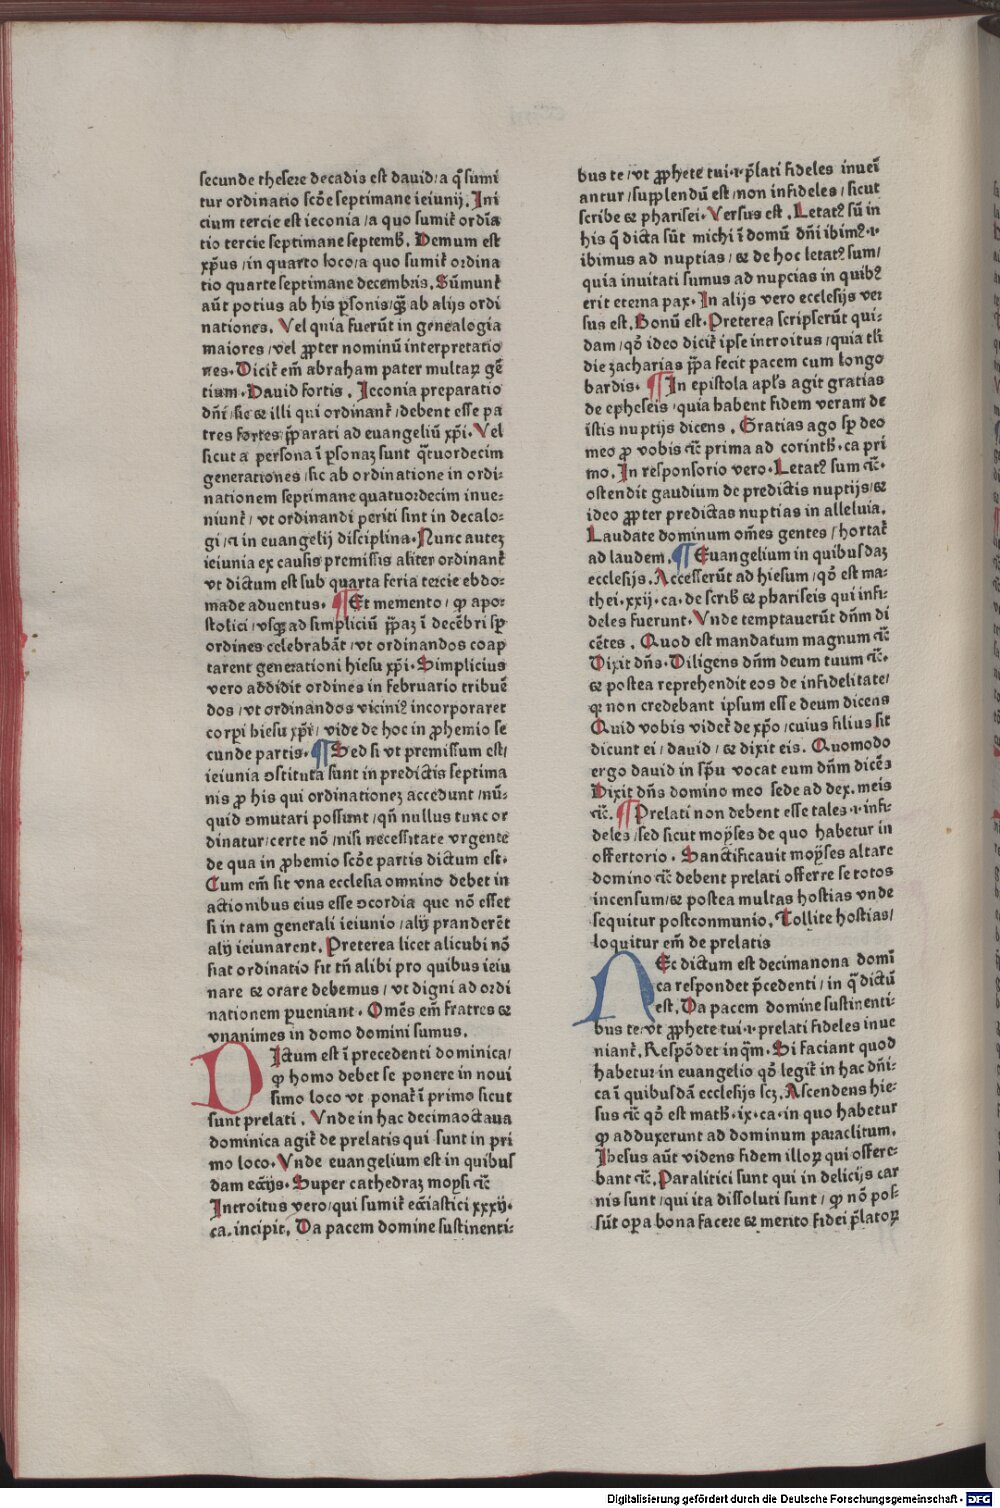 secunde thesere decadis est dauid/a q̄ sumi
tur ordinatio scōe septimane ieiunij. Ini
cium tercie est ieconia/a quo sumit̃ ordīa
tio tercie septimane septemb̃. Demum est
xp̄us/in quarto loco/a quo sumit̃ ordina
tio quarte septimane decembris. Sūmunt̃
aūt potius ab his p̱sonis/q̃ꝫ ab alijs ordi
nationes. Vel quia fuerūt in genealogia
maiores/vel ꝓpter nominū interpretatio
nes. Dicit̃ em̄ abraham pater multaꝝ gē
tium. Dauid fortis. Ieconia preparatio
dn̄i/sic et illi qui ordinant̃/debent esse pa
tres fortes/p̄parati ad euangeliū xp̄i. Vel
sicut a persona ī ꝑsonaꝫ sunt q̄tuordecim
generationes/sic ab ordinatione in ordi-
nationem septimane quatuordecim inue-
niunt̃/vt ordinandi periti sint in decalo-
gi/⁊ in euangelij disciplina. Nunc auteꝫ
ieiunia ex causis premissis aliter ordinant̃
vt dictum est sub quarta feria tercie ebdo-
made aduentus. ¶Et memento/ꝙ apo-
stolici/vsqꝫ ad simpliciū p̄paꝫ ī decēbri sp̱
ordines celebrabāt/vt ordinandos coap
tarent generationi hiesu xp̄i. Simplicius
vero addidit ordines in februario tribuē
dos/vt ordinandos viciniꝰ incorporaret
corpi hiesu xp̄i/vide de hoc in ꝓhemio se
cunde partis. ¶Sed si vt premissum est/
ieiunia ↄstituta sunt in predictis septima
nis ꝓ his qui ordinationeꝫ accedunt/nū-
quid ↄmutari possunt/qn̄ nullus tunc or
dinatur/certe nō/nisi necessitate vrgente
de qua in ꝓhemio scōe partis dictum est.
Cum em̄ sit vna ecclesia omnino debet in
actionibus eius esse ↄcordia que nō esset
si in tam generali ieiunio/alij pranderēt
alij ieiunarent. Preterea licet alicubi nō
fiat ordinatio fit tn̄ alibi pro quibus ieiu
nare et orare debemus/vt digni ad ordi
nationem ꝑueniant. Omēs em̄ fratres et
vnanimes in domo domini sumus.
Dictum est ī precedenti dominica/
ꝙ homo debet se ponere in noui
simo loco vt ponat̃ ī primo sicut
sunt prelati. Vnde in hac decimaoctaua
dominica agit̃ de prelatis qui sunt in pri
mo loco. Vnde euangelium est in quibus
dam ecc̄ijs. Super cathedraꝫ moysi ⁊c̃
Introitus vero/qui sumit̃ ecc̄iastici xxxij.
ca. incipit. Da pacem domine sustinenti-
bus te/vt ꝓphete tui.⁊.p̄lati fideles inueī
antur/supplendū est/non infideles/sicut
scribe et pharisei. Versus est. Letatꝰ sū in
his q̄ dicta sūt michi ī domū dn̄i ibimꝰ.⁊.
ibimus ad nuptias/et de hoc letatꝰ sum/
quia inuitati sumus ad nupcias in quibꝰ
erit eterna pax. In alijs vero ecclesijs ver
sus est. Bonū est. Preterea scripserūt qui-
dam/qō ideo dicit̃ ipse introitus/quia tli
die zacharias p̄pa fecit pacem cum longo
bardis. ¶In epistola apl̄s agit gratias
de epheseis/quia habent fidem veram de
istis nuptijs dicens. Gratias ago sp̱ deo
meo ꝓ vobis ⁊c̃ prima ad corinth̃. ca pri
mo. In responsorio vero. Letatꝰ sum ⁊c̃.
ostendit gaudium de predictis nuptijs/et
ideo ꝓpter predictas nuptias in alleluia.
Laudate dominum om̄es gentes/hortat̃
ad laudem. ¶Euangelium in quibusdaꝫ
ecclesijs. Accesserūt ad hiesum/qō est ma-
thei. xxij. ca. de scrib̃ et phariseis qui infi-
deles fuerunt. Vnde temptauerūt dn̄m di
cētes. Quod est mandatum magnum ⁊c̃
Dixit dn̄s. Diligens dn̄m deum tuum ⁊c̃.
et postea reprehendit eos de infidelitate/
qꝛ non credebant ipsum esse deum dicens
Quid vobis videt̃ de xp̄o/cuius filius sit
dicunt ei/dauid/et dixit eis. Quomodo
ergo dauid in sp̄u vocat eum dn̄m dicēs
Dixit dn̄s domino meo sede ad dex. meis
⁊c̃. ¶Prelati non debent esse tales.⁊.infi-
deles/sed sicut moyses de quo habetur in
offertorio. Sanctificauit moyses altare
domino ⁊c̃ debent prelati offerre se totos
incensum/et postea multas hostias vnde
sequitur postconmunio. Tollite hostias/
loquitur em̄ de prelatis
Ec dictum est decimanona domi
ca respondet p̄cedenti/in q̄ dictū
est. Da pacem domine sustinenti-
bus te/vt ꝓphete tui.⁊.prelati fideles inue
niant̃. Respōdet inq̄m. Si faciant quod
habetur in euangelio qō legit̃ in hac dn̄i-
ca ī quibusdā ecclesijs scꝫ. Ascendens hie-
sus ⁊c̃ qō est math̃. ix. ca. in quo habetur
ꝙ adduxerunt ad dominum paraclitum.
Ihesus aūt videns fidem illoꝝ qui offere-
bant ⁊c̃. Paralitici sunt qui in delicijs car
nis sunt/qui ita dissoluti sunt/ꝙ nō pos-
sūt oꝑa bona facere et merito fidei p̄latoꝝ
Digitalisierung gefördert durch die Deutsche Forschungsgemeinschaft - DFG